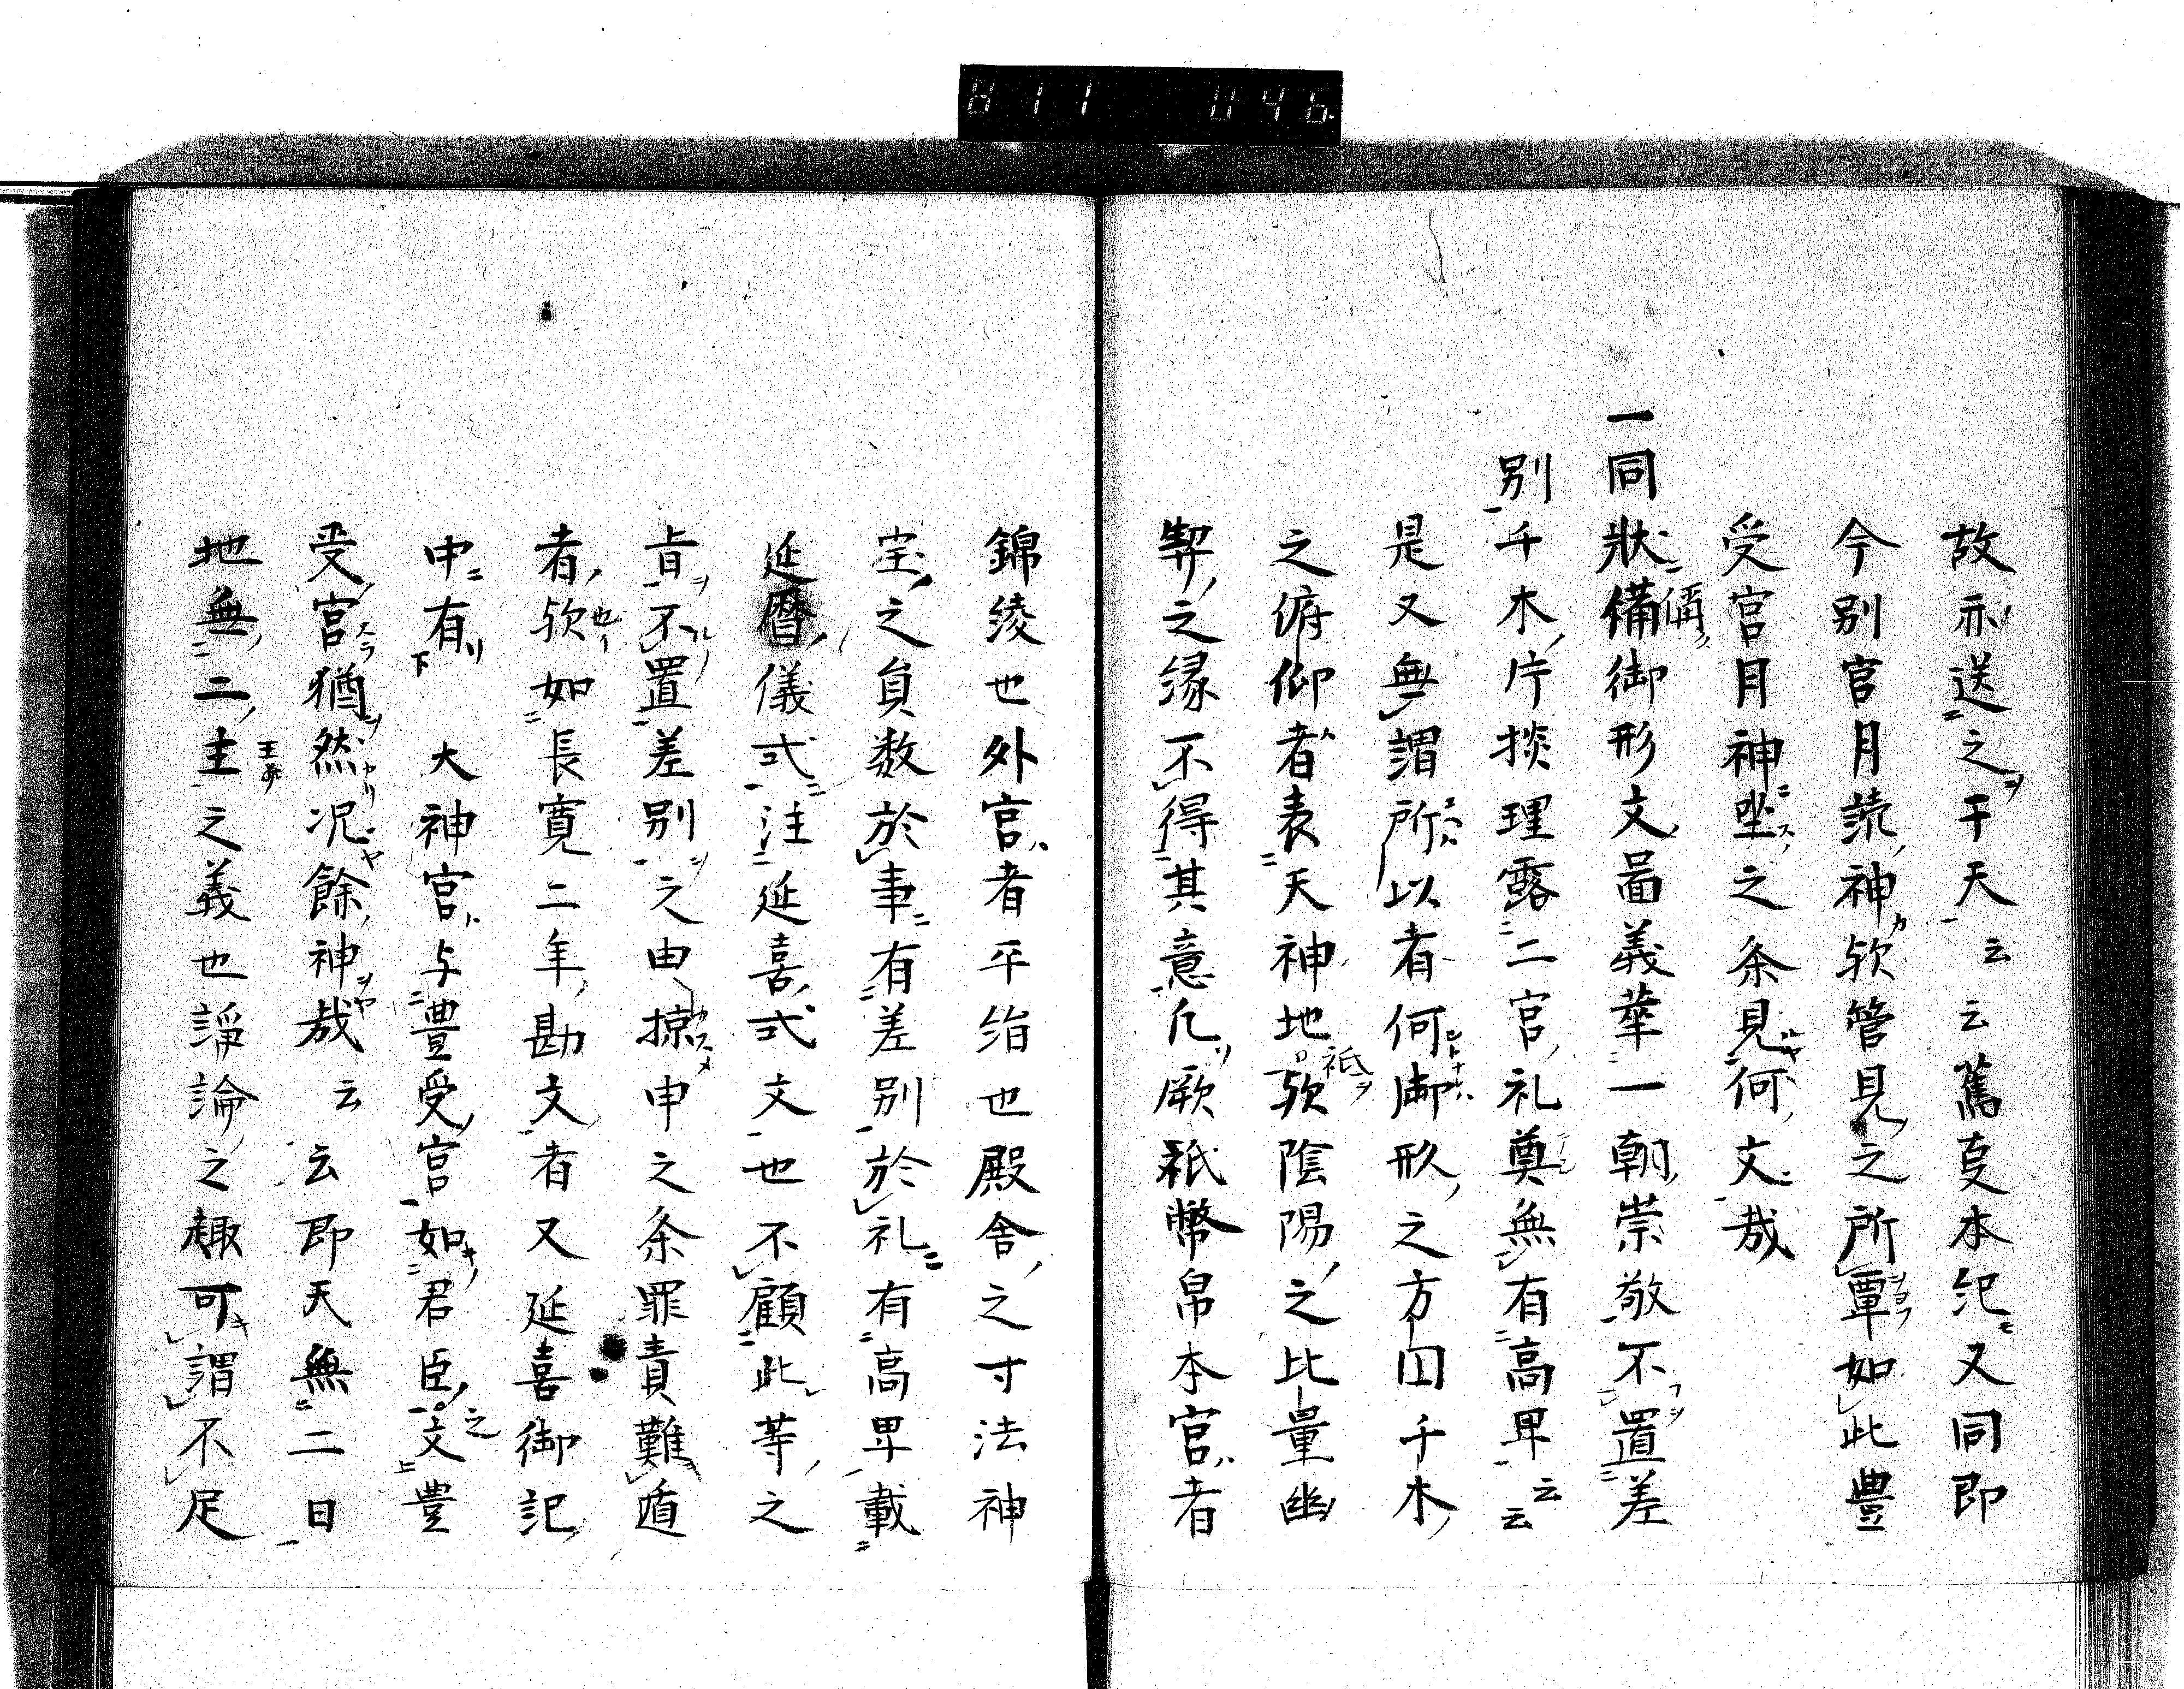 故亦送之于天云云旧事本紀又同即
今别宮月読神欤管見之所覃如此豊
受宮月神坐之条見何文哉
一同狀備御形文啚義華一朝崇敬不置差
别千木片掞理露二宮礼奠無有高卑云云
是又無謂所以者何御形之方囙千木
之俯仰者表天神地欤陰陽之比量幽
契之縁不得其意凡厥祇幣帛本宮者
錦綾也外宮者平絹也殿舎之寸法神
宝之員数於事有差别於礼有高卑載
延暦儀式注延喜式文也不顧此等之
旨不置差别之由掠申之条罪責難遁
者欤如長寛二年勘文者又延喜御記
中有 大神宮与豊受宮如君臣文豊
受宮猶然况餘神哉云云即天無二日
地無二主之義也諍論之趣可謂不足